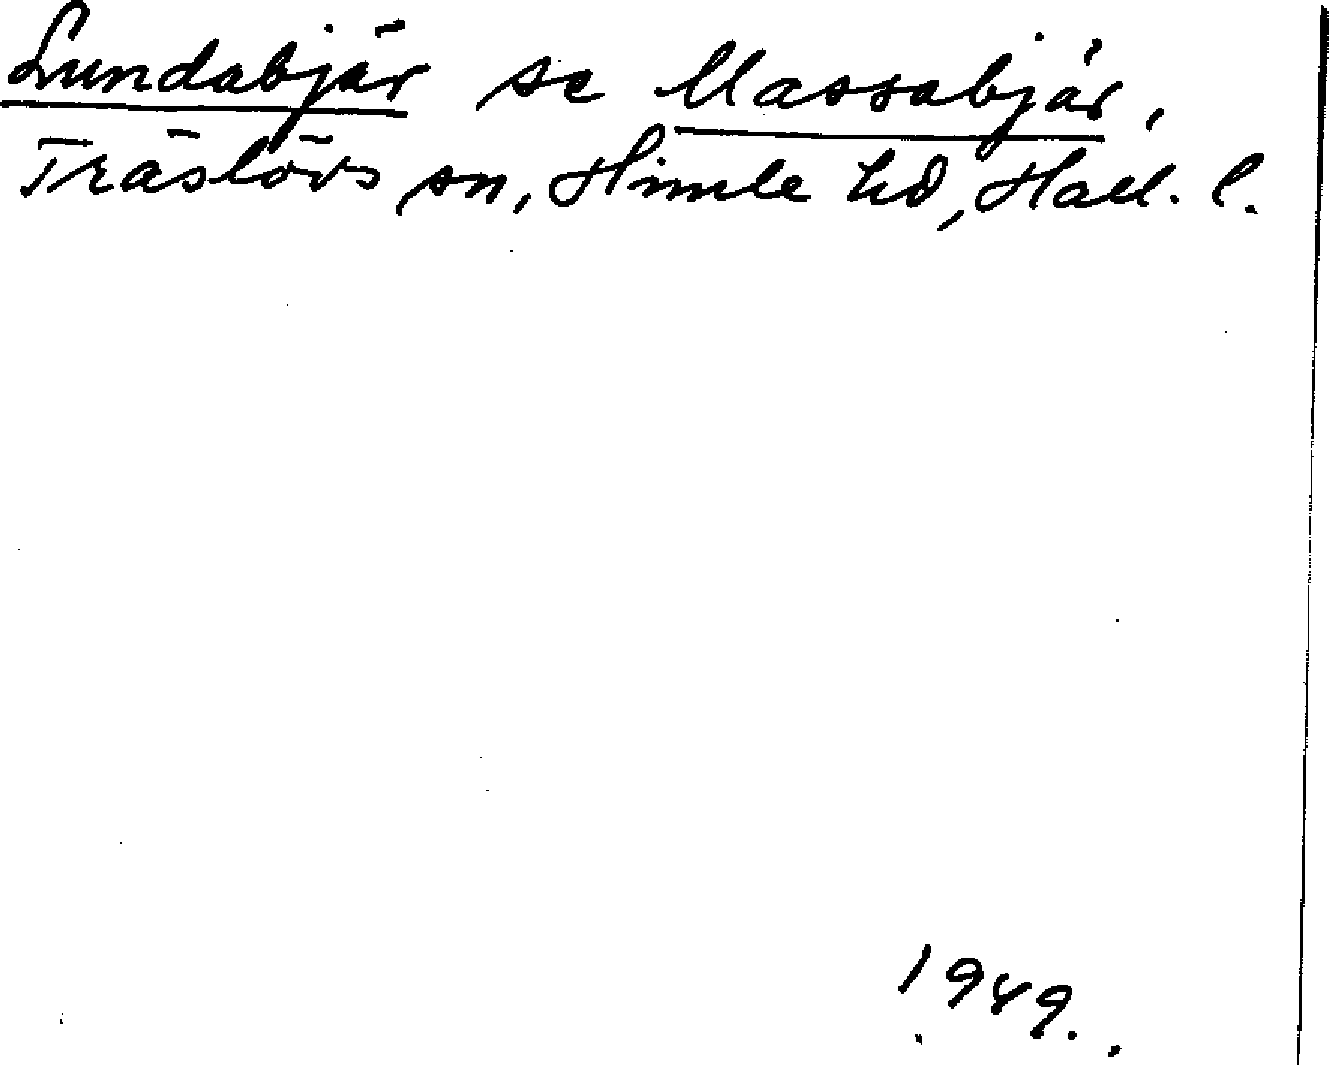 Lundabjär se Massabjär,
Träslövs sn, Himle hd, Hall. l.
1949.